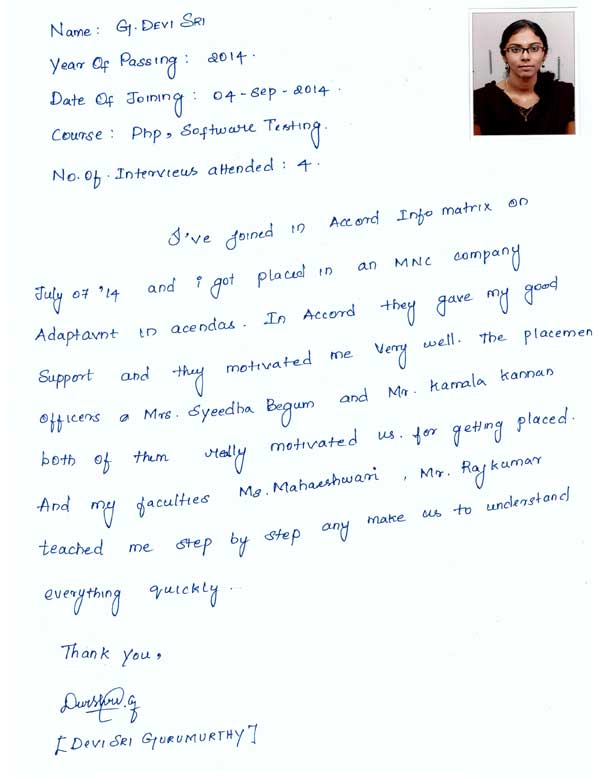 Name: G. Devi Sri
Year Of Passing: 2014.
Date Of Joining: 04-Sep-2014.
Course: Php, Software Testing.
No. of. Interviews attended: 4.
I've joined in Accord Info matrix on
July 07 '14 and i got placed in an MNC company
Adaptavnt in acendas. In Accord they gave my good
Support and they motivated me Very well. The placemen
officers Mrs. Syeedha Begum and Mr. Kamala Kannan
both of them really motivated us. for getting placed.
And my faculties Ms. Mahaeshwari, Mr. Rajkumar
teached me step by step any make us to understand
everything quickly..
Thank you,
[DEVI SRI GURUMURTHY]